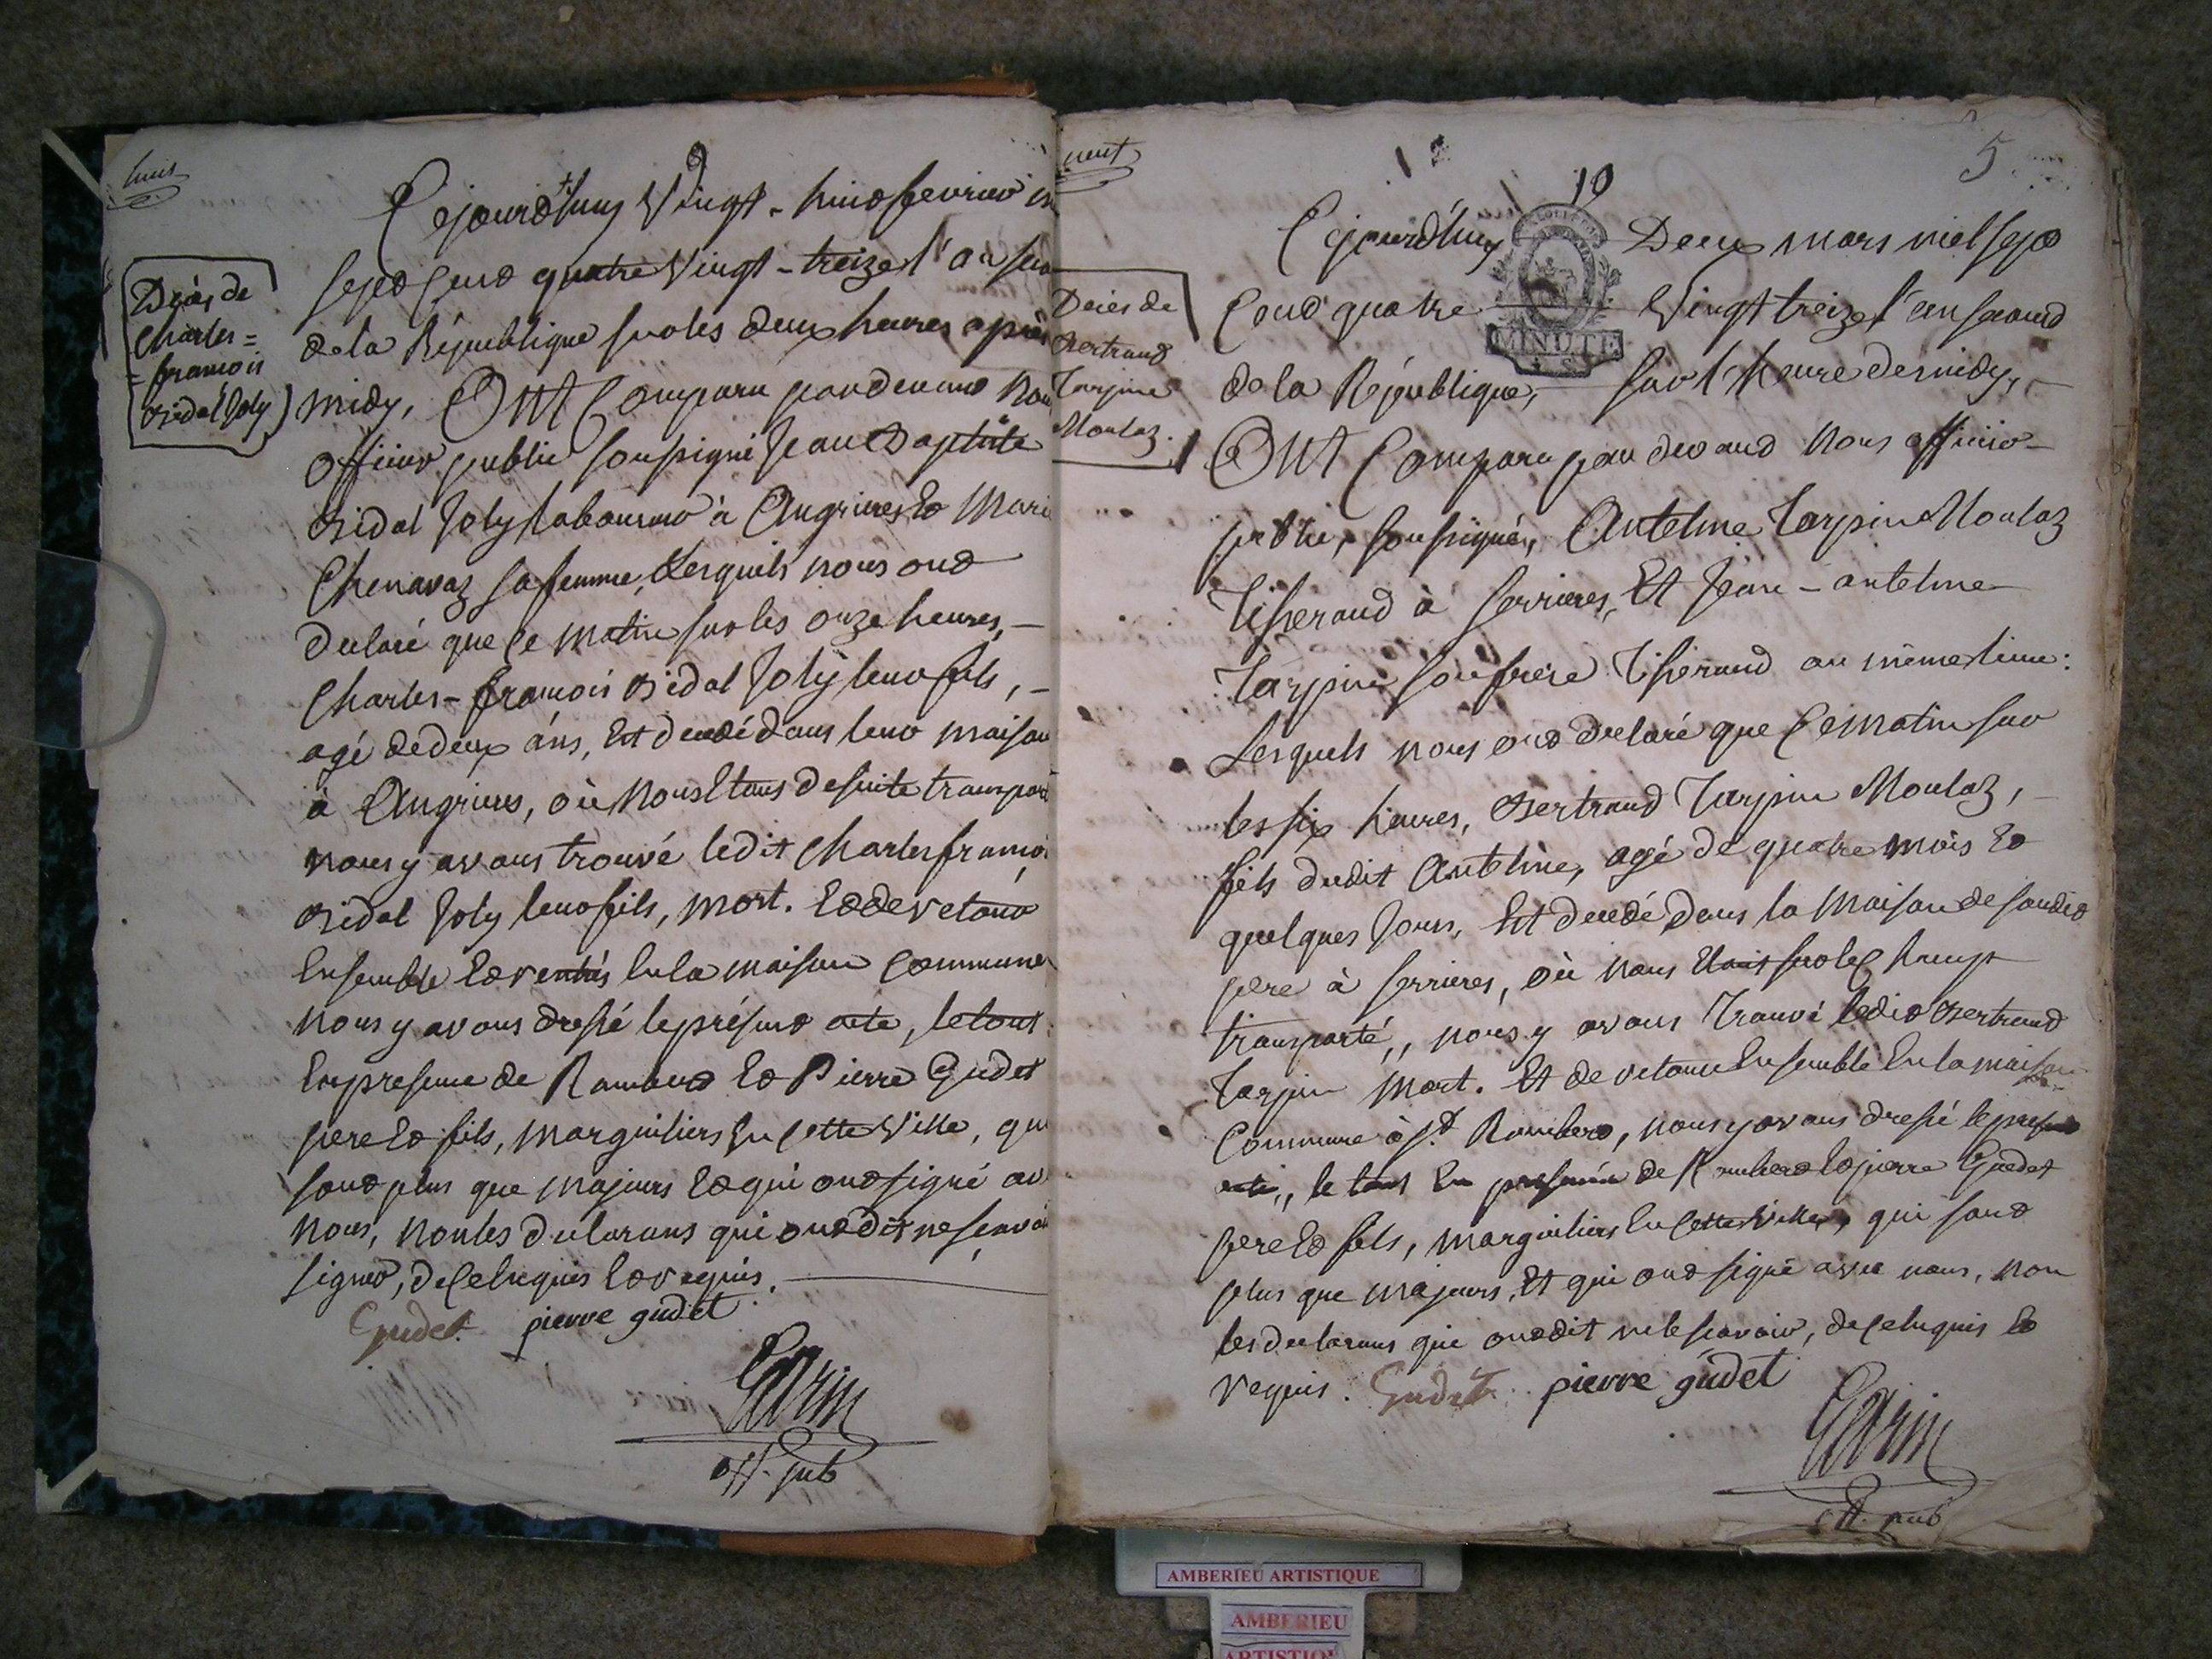 huit
9
Décès de
Charles=
=françois
Bidal Joly
Cejourd'huy Vingt-huit fevrier
sept Cent quatre Vingt-treize l'an
de la République sur les deux heures après
midy, Ont Comparu pardevant Nous
officier public soussigné Jean Baptiste
Bidal Joly laboureur à Angrieres Et Marie
Chenavaz sa femme, Lesquels nous ont
declaré que Ce matin sur les onze heures,
Charles-françois Bidal Joly leur fils,
agé de deux ans, Est decedé dans leur maison
à Angrieres, où Nous Etans de suite transporté
nous y avons trouvé ledit Charles françois
Bidal Joly leur fils, mort. Et de retour
Ensemble Et rentrés En la maison Commune
nous y avons dressé le présent acte, le tout
En presence de Rambert Et Pierre Gudet
pere Et fils, marguiliers En Cette Ville, qui
sont plus que majeurs Et qui ont signé avec
nous, non les declarans qui ont dit ne sçavoir
signer, de Ce Enquis Et requis.
Gudet pierre gudet
Garin
off. pub
neuf
10
5
MINUTE
Décès de
Bertrand
Tarpin
Moulaz.
Cejourd'huy Deux mars mil sept
Cent quatre Vingt treize l'an second
de la République, sur l'heure de midy,
Ont Comparu par devant Nous officier
public, soussigné, Antelme Tarpin Moulaz
Tisserand à serrieres, Et Jean-antelme
Tarpin son frere Tisserand au même lieu:
Lesquels nous ont declaré que Ce matin sur
les six heures, Bertrand Tarpin Moulaz,
fils dudit Antelme, agé de quatre mois Et
quelques Jours, Est decedé dans la maison de sondit
pere à serrieres, où nous Etant sur le Champ
transporté, nous y avons Trouvé ledit Bertrand
Tarpin mort. Et de retour Ensemble En la maison
Commune à St. Rambert, nous y avons dressé le present
acte, le tout En presence de Rambert Et pierre Gudet
pere Et fils, marguiliers En Cette Ville, qui sont
plus que majeurs, Et qui ont signé avec nous, non
les declarans qui ont dit ne le scavoir, de Ce Enquis Et
requis. Gudet pierre gudet
Garin
off. pub
AMBERIEU ARTISTIQUE
AMBERIEU
ARTISTIQUE